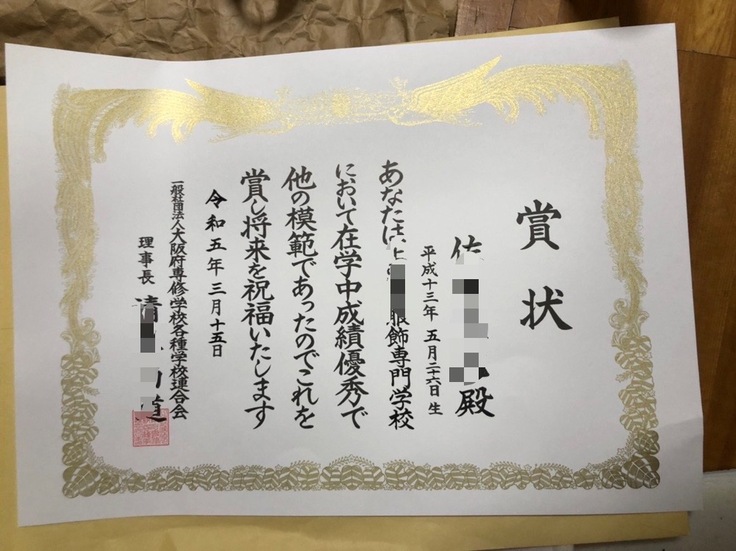 賞状
佐 殿
平成十三年 五月二十六日 生
あなたは、 服飾専門学校
において在学中成績優秀で
他の模範であったのでこれを
賞し将来を祝福いたします
令和五年三月十五日
一般社団法人大阪府専修学校各種学校連合会
理事長 清